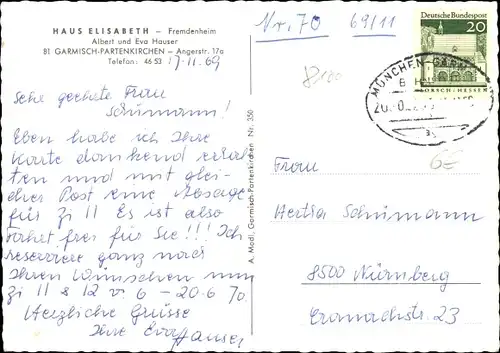 HAUS ELISABETH – Fremdenheim
Albert und Eva Hauser
81 GARMISCH-PARTENKIRCHEN – Angerstr. 17a
Telefon: 46 53
17.11.69
Sehr geehrte Frau
Schümann!
Eben habe ich Ihre
Karte dankend erhal
ten und mit glei-
cher Post eine Absage
für Zi 11 Es ist also
Fahrt frei für Sie!!! Ich
reserviere ganz nach
Ihren Wünschen nun
Zi 11 & 12 v 6 – 20.6 70.
Herzliche Grüsse
Ihre Eva Hauser
A. Modl, Garmisch-Partenkirchen Nr. 350
Nr. 70 69/11
DEUTSCHE BUNDESPOST
20
LORSCH/HESSEN
MÜNCHEN-GARM
Frau
Hertha Schümann
8500 Nürnberg
Cranachstr. 23